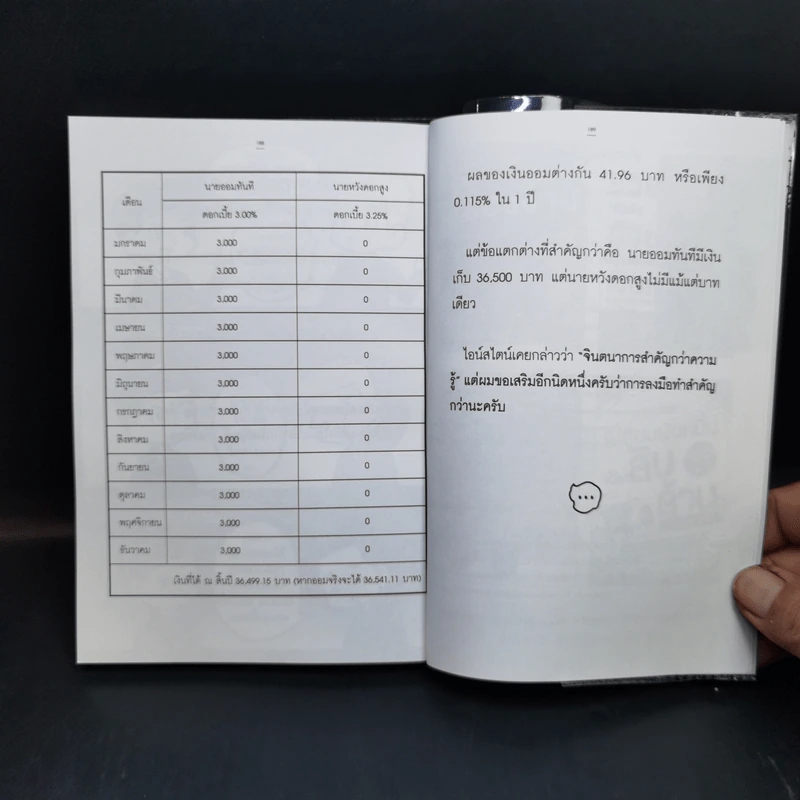 188
เดือน นายออมทันที นายหวังดอกสูง
ดอกเบี้ย 3.00% ดอกเบี้ย 3.25%
มกราคม 3,000 0
กุมภาพันธ์ 3,000 0
มีนาคม 3,000 0
เมษายน 3,000 0
พฤษภาคม 3,000 0
มิถุนายน 3,000 0
กรกฎาคม 3,000 0
สิงหาคม 3,000 0
กันยายน 3,000 0
ตุลาคม 3,000 0
พฤศจิกายน 3,000 0
ธันวาคม 3,000 0
เงินที่ได้ ณ สิ้นปี 36,499.15 บาท (หากออมจริงจะได้ 36,541.11 บาท)
189
ผลของเงินออมต่างกัน 41.96 บาท หรือเพียง
0.115% ใน 1 ปี
แต่ข้อแตกต่างที่สำคัญกว่าคือ นายออมทันทีมีเงิน
เก็บ 36,500 บาท แต่นายหวังดอกสูงไม่มีแม้แต่บาท
เดียว
ไอน์สไตน์เคยกล่าวว่า "จินตนาการสำคัญกว่าความ
รู้" แต่ผมขอเสริมอีกนิดหนึ่งครับว่าการลงมือทำสำคัญ
กว่านะครับ
...